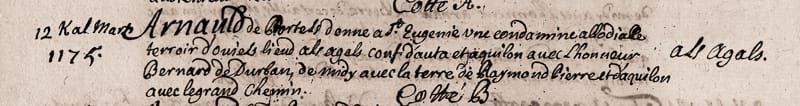 Cotté A.
12 Kal Mart Arnauld de Portels donne a St Eugenie vne condamine allodialle
1175. terroir d'ouiels lieud als agals conf. d'auta et aquilon avec L'honneur als Agals.
Bernard de Durban, de midy avec la terre de Raymond Pierre et d'aquilon
avec le grand Chemin. Cotté B.